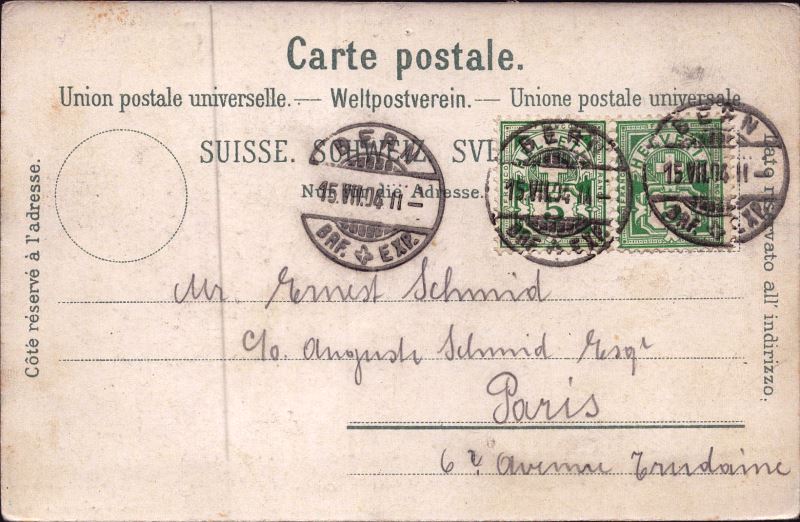 Carte postale.
Union postale universelle. — Weltpostverein. — Unione postale universale
SUISSE. SCHWEIZ. SVI
Nur für die Adresse.
Côté réservé à l'adresse.
Lato riservato all' indirizzo.
BERN
15.VII.04 11–
BRF. EXP.
BERN
15.VII.04 11–
BRF. EXP.
5
BERN
15.VII.04 11–
BRF. EXP.
HELVETIA
Mr. Ernest Schmid
c/o. Auguste Schmid Esqr
Paris
Avenue Trudaine